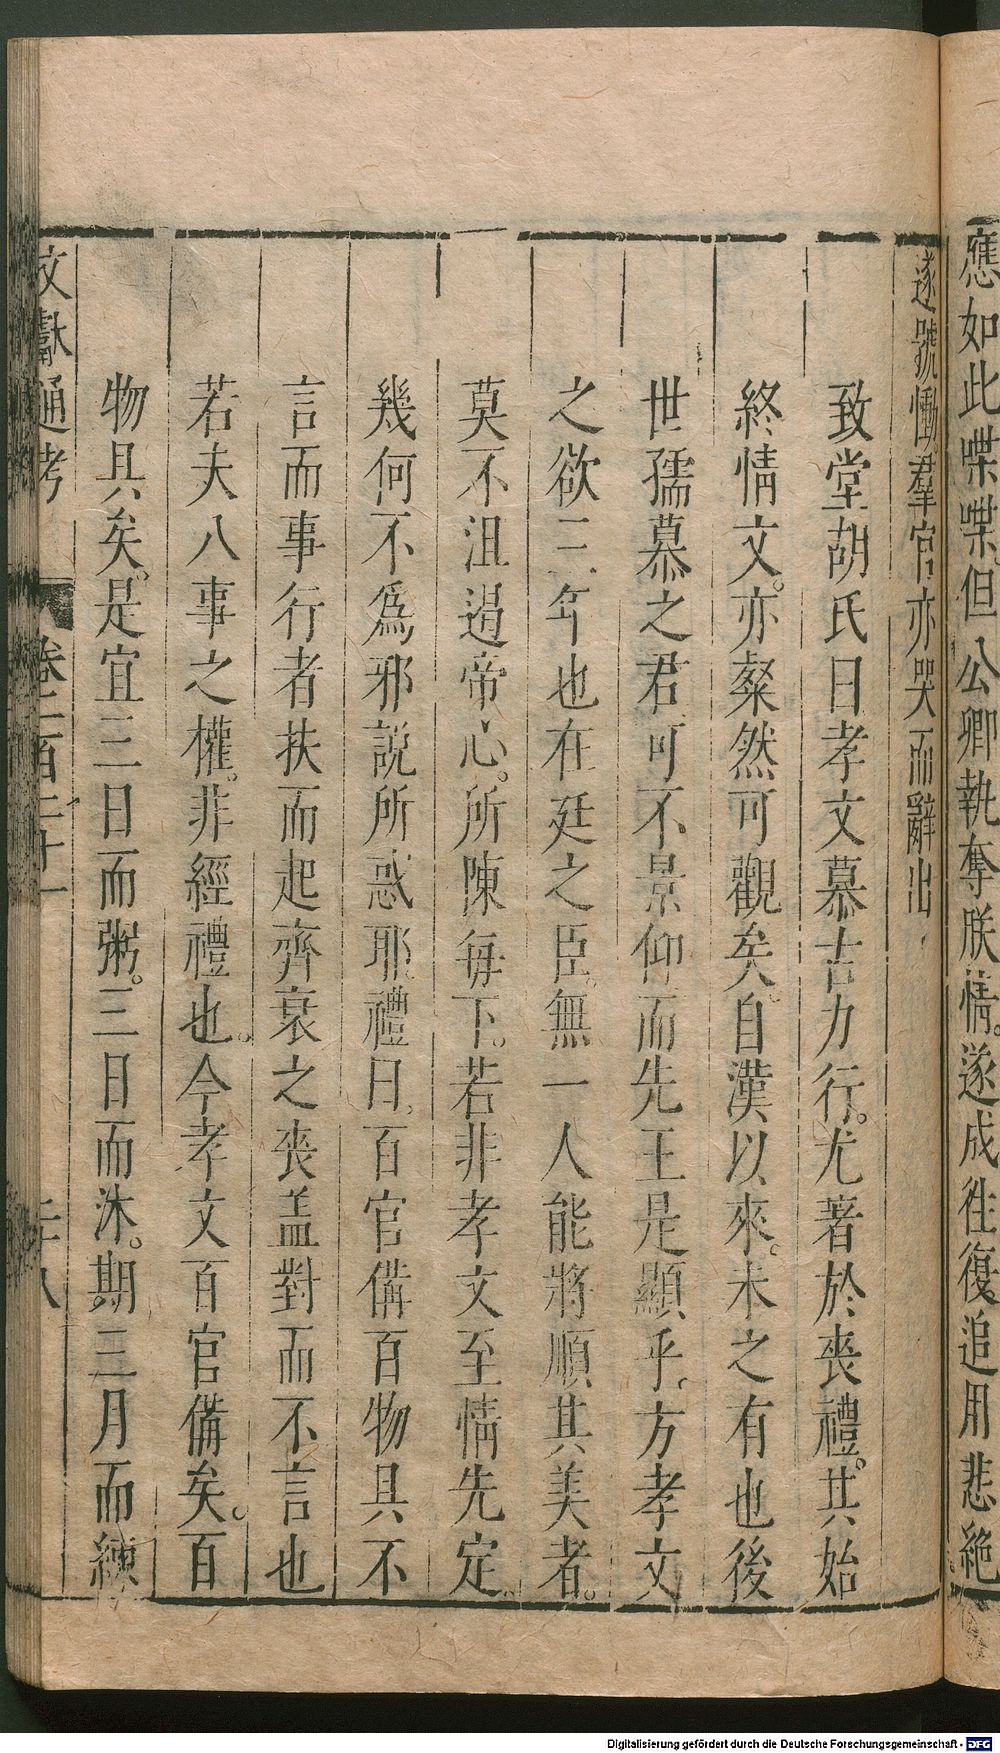 應如此喋喋。但公卿執奪朕情。遂成往復追用悲絶
遂號慟羣官亦哭而辭出
致堂胡氏曰孝文慕古力行。尤著於喪禮。其始
終情文。亦粲然可觀矣。自漢以來。未之有也後
世孺慕之君可不景仰而先王是顯乎。方孝文
之欲三年也在廷之臣。無一人能將順其美者。
莫不沮遏帝心。所陳每下。若非孝文至情先定。
幾何不爲邪說所惑耶禮曰。百官備百物具不
言而事行者扶而起齊衰之喪盖對而不言也
若夫八事之權。非經禮也。今孝文百官備矣。百
物具矣。是宜三日而粥。三日而沐。期三月而練
文獻通考 卷一百二十一 二十八
Digitalisierung gefördert durch die Deutsche Forschungsgemeinschaft - DFG